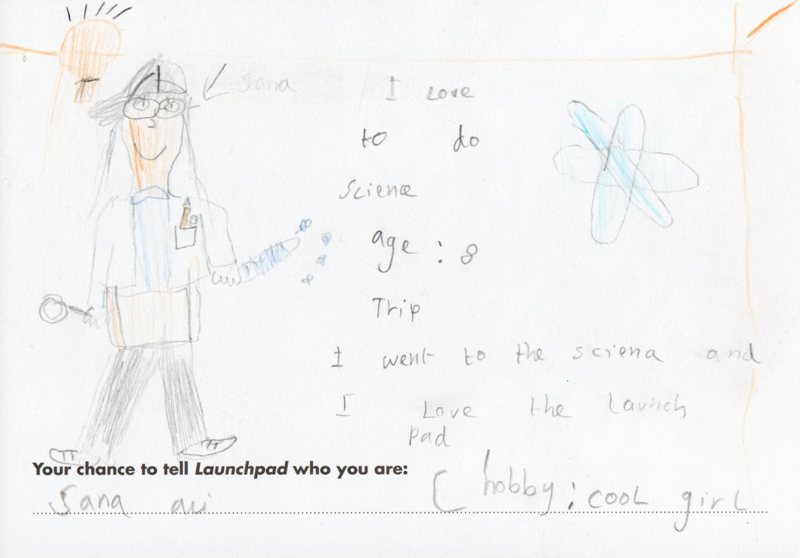 Sana
I Love
to do
Science
age : 8
Trip
I went to the sciena and
I Love the Launch
pad
Your chance to tell Launchpad who you are:
Sana
hobby: cool girl